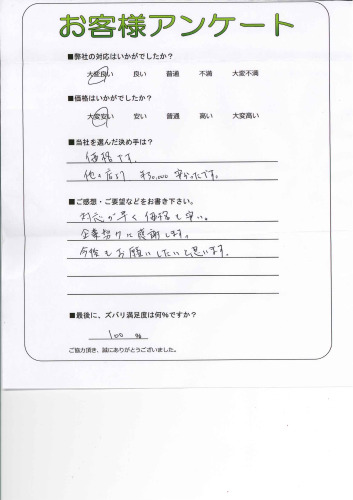 お客様アンケート
■弊社の対応はいかがでしたか？
大変良い　良い　普通　不満　大変不満
■価格はいかがでしたか？
大変安い　安い　普通　高い　大変高い
■当社を選んだ決め手は？
価格です。
他の店より ¥30,000 安かったです。
■ご感想・ご要望などをお書き下さい。
対応が早く価格も安い。
企業努力に感謝します。
今後もお願いしたいと思います。
■最後に、ズバリ満足度は何%ですか？
100 %
ご協力頂き、誠にありがとうございました。